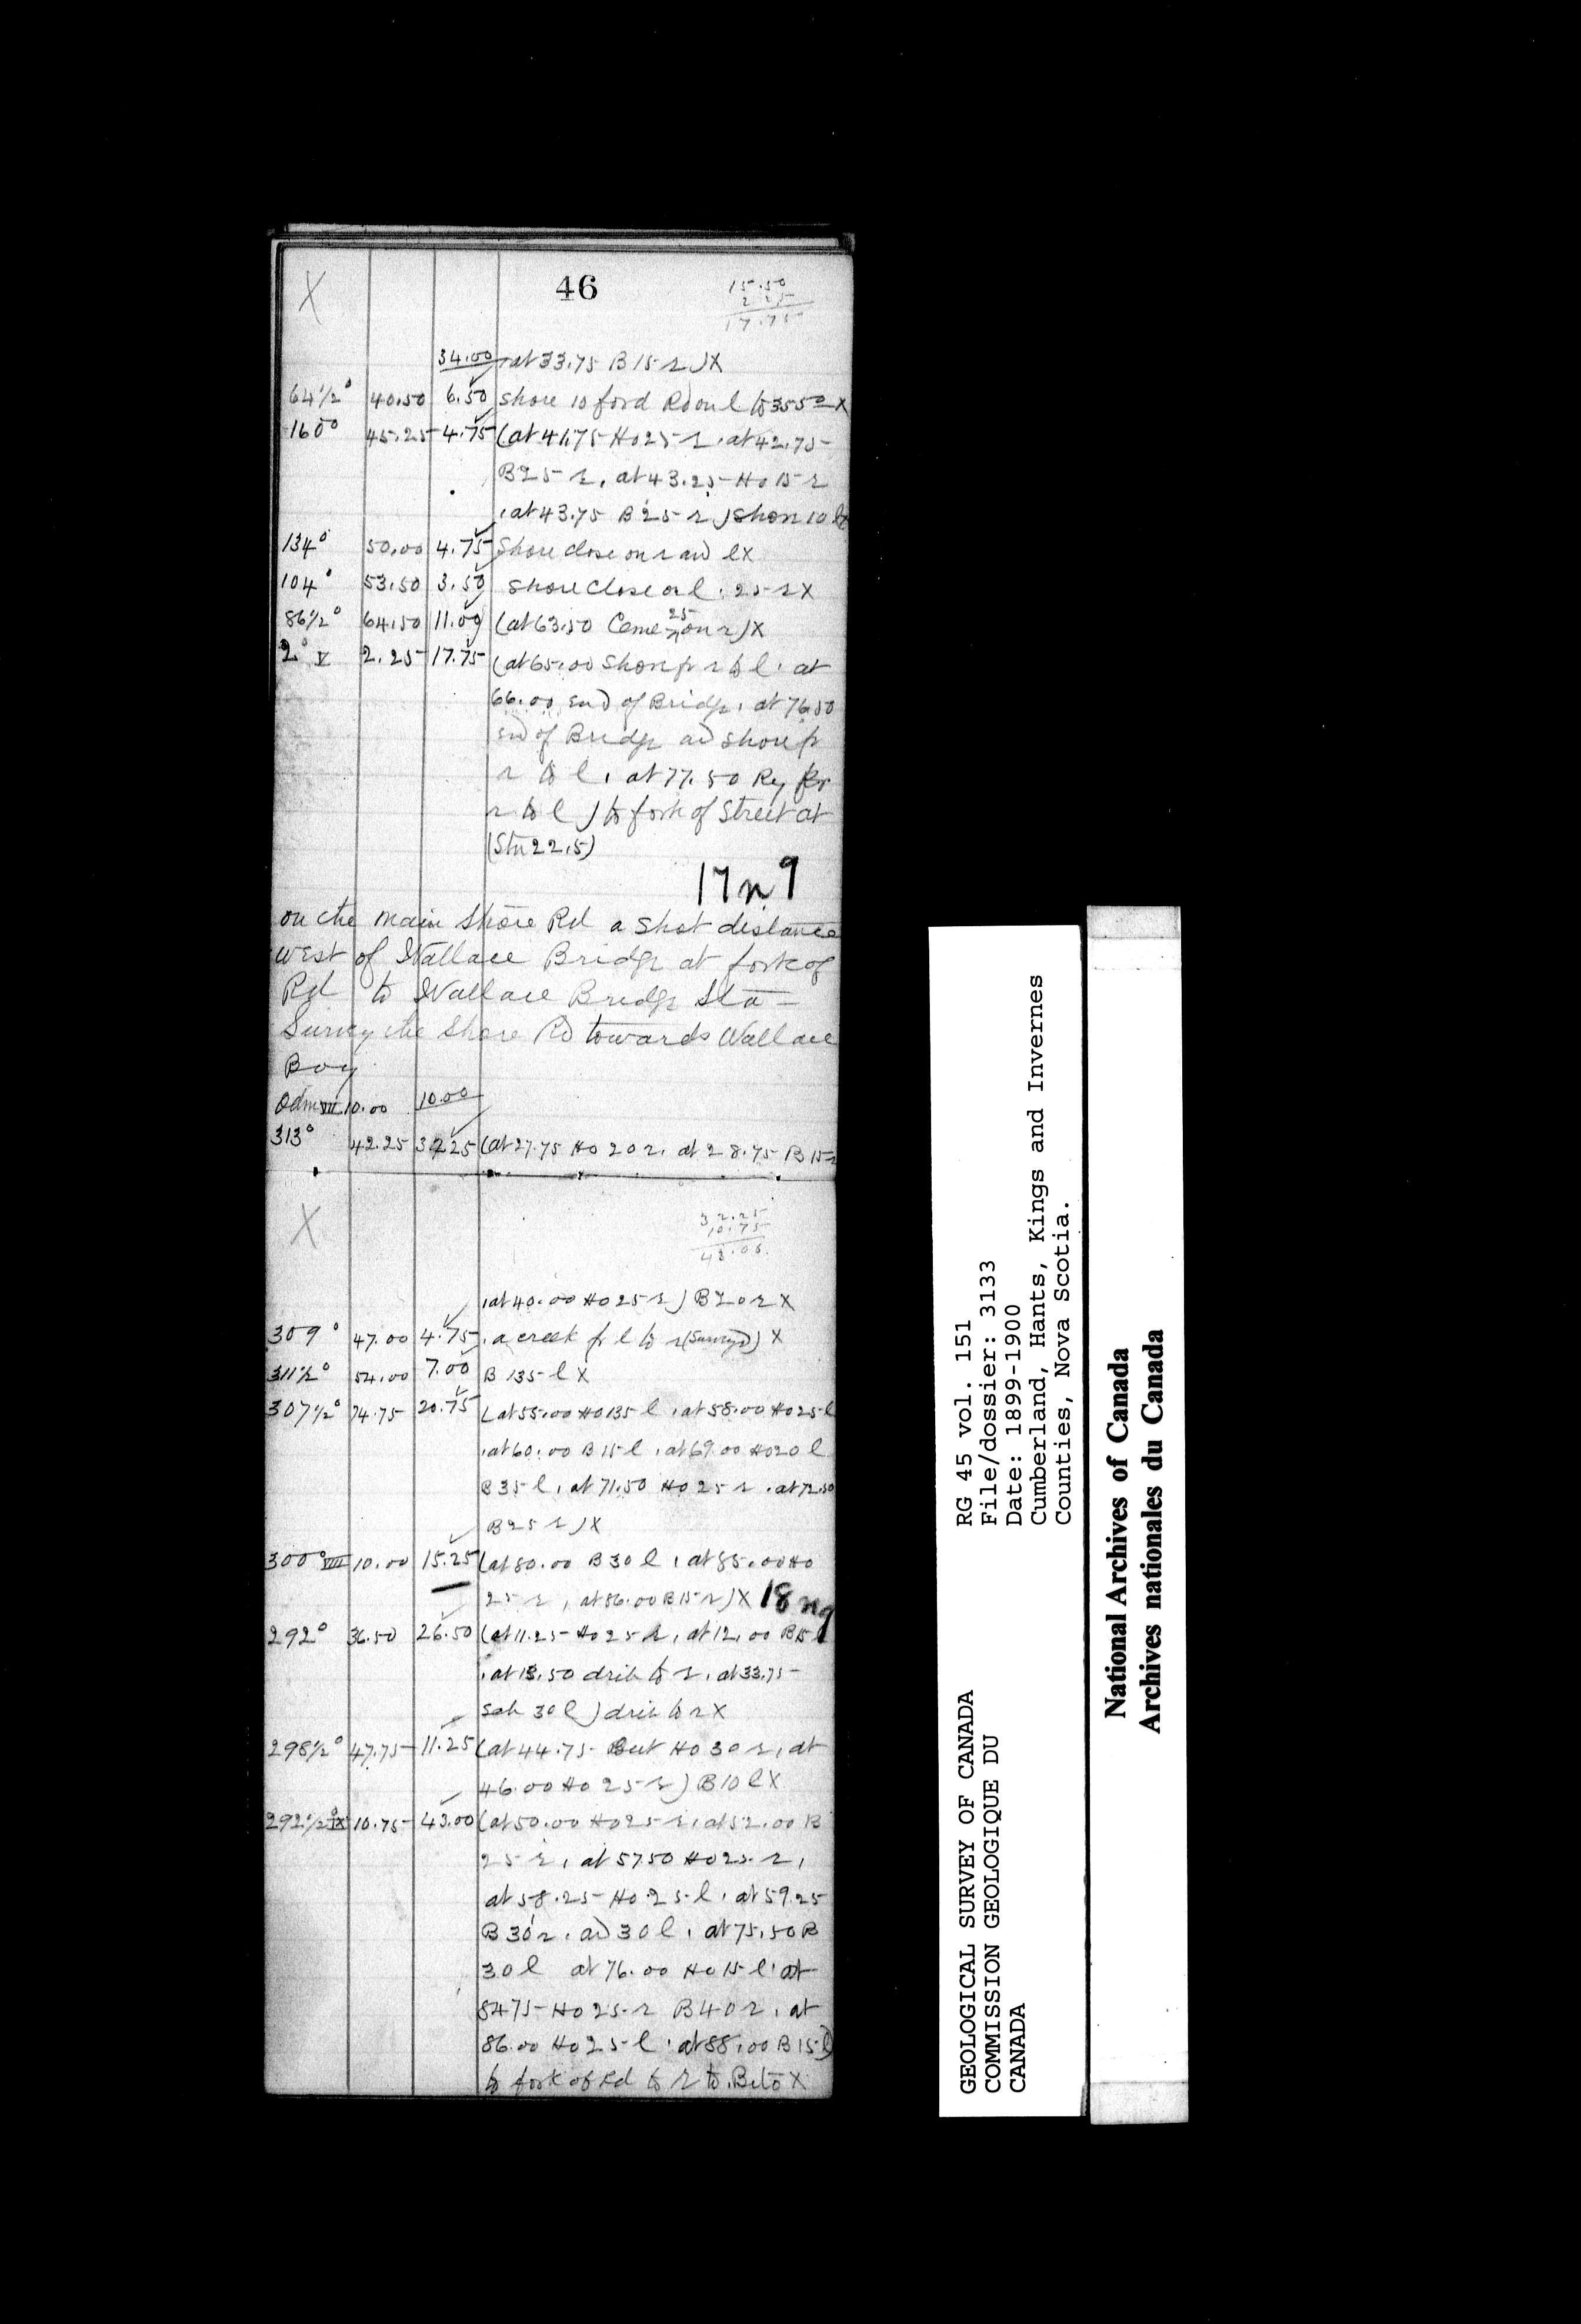 X
46
15.50
2 25
17.75
34.00 at 33.75 B 15 r ) X
64 1/2° 40.50 6.50 Shore 10 ford Rd on l to 355° X
160° 45.25 4.75 (at 41.75 Ho 25 r, at 42.75
B 25 r, at 43.25 Ho 15 r
, at 43.75 B 25 r ) Shore 10
134° 50.00 4.75 Shore close on r and l X
104° 53.50 3.50 Shore close on l, 25 r X
86 1/2° 64.50 11.00 (at 63.50 Ceme 25 on r) X
2° V 2.25 17.75 (at 65.00 Shore fr r to l, at
66.00 end of Bridge, at 76.50
end of Bridge and shore fr
r to l, at 77.50 Ry fr
r to l ) to fork of Street at
(Stn 22.5)
17 n 9
on the main Shore Rd a Short distance
west of Wallace Bridge at fork of
Rd to Wallace Bridge Sta -
Survey the Shore Rd towards Wallace
Bay
Odm VII 10.00 10.00
313° 42.25 32.25 (at 27.75 Ho 20 r, at 28.75 B 15 r
X
32.25
10.75
43.00
, at 40.00 Ho 25 r ) B 20 r X
309° 47.00 4.75 , a creek fr l to r (Surveyd) X
311 1/2° 54.00 7.00 B 135 l X
307 1/2° 74.75 20.75 (at 55.00 Ho 135 l, at 58.00 Ho 25 l
, at 60.00 B 15 l, at 69.00 Ho 20 l
B 35 l, at 71.50 Ho 25 r, at 72.50
B 25 r ) X
300° VIII 10.00 15.25 (at 80.00 B 30 l, at 85.00 Ho
25 r, at 86.00 B 15 r ) X 18 ng
292° 36.50 26.50 (at 11.25 Ho 25 r, at 12.00 B 15
, at 13.50 drib to r, at 33.75
Sch 30 l ) drib to r X
298 1/2° 47.75 11.25 (at 44.75 Ho 30 r, at
46.00 Ho 25 r ) B 10 l X
292 1/2° IX 10.75 43.00 (at 50.00 Ho 25 r, at 52.00 B
25 r, at 57.50 Ho 25 r,
at 58.25 Ho 25 l, at 59.25
B 30 r, and 30 l, at 75.50 B
30 l at 76.00 Ho 15 l, at
84 75 Ho 25 r B 40 r, at
86.00 Ho 25 l, at 88.00 B 15 l)
to fork of Rd to r to X
GEOLOGICAL SURVEY OF CANADA
COMMISSION GEOLOGIQUE DU
CANADA
RG 45 vol. 151
File/dossier: 3133
Date: 1899-1900
Cumberland, Hants, Kings and Invernes
Counties, Nova Scotia.
National Archives of Canada
Archives nationales du Canada